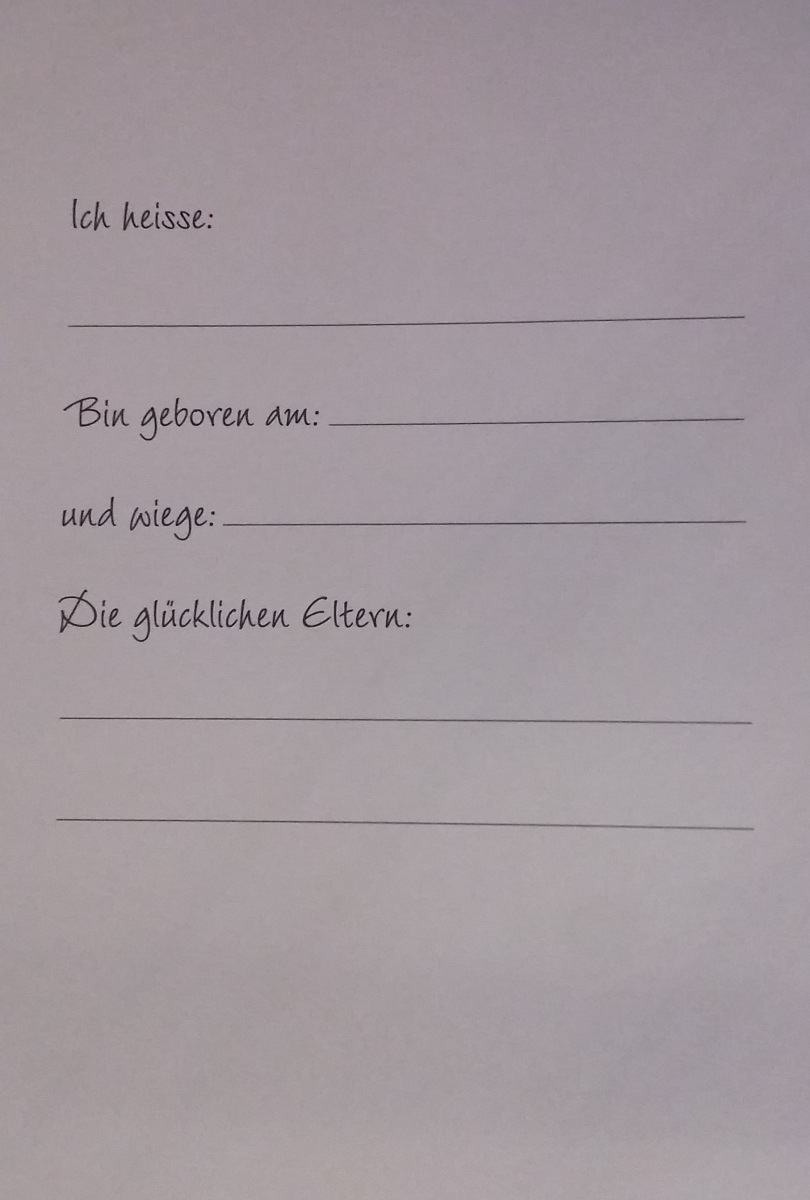 Ich heisse:
Bin geboren am:
und wiege:
Die glücklichen Eltern: